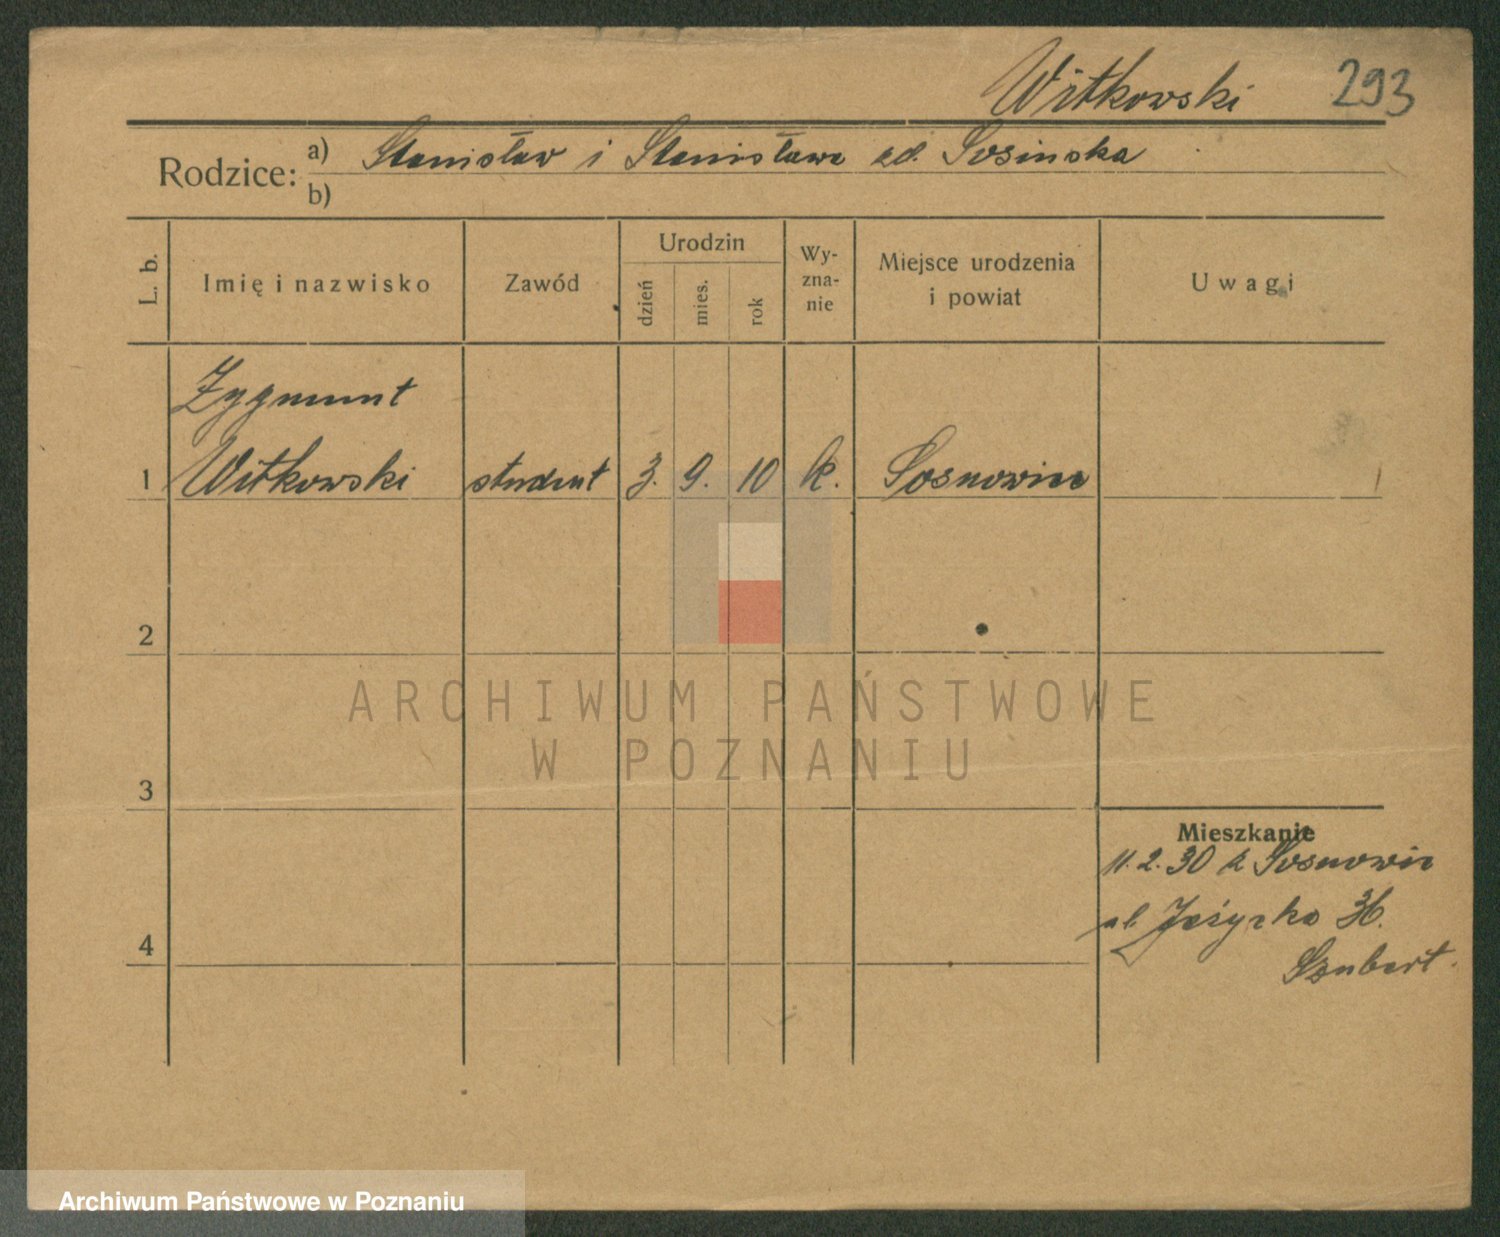 Witkowski 293
Rodzice: a) Stanisław i Stanisława zd. Sosinska
b)
L. b. Imię i nazwisko Zawód Urodzin dzień mies. rok Wy-
zna-
nie Miejsce urodzenia
i powiat Uwagi
Zygmunt
1 Witkowski student 3. 9. 10 k. Sosnowice
2
ARCHIWUM PAŃSTWOWE
W POZNANIU
3
Mieszkanie
11.2.30 z Sosnowic
ul. 36.
4
Szubert.
Archiwum Państwowe w Poznaniu